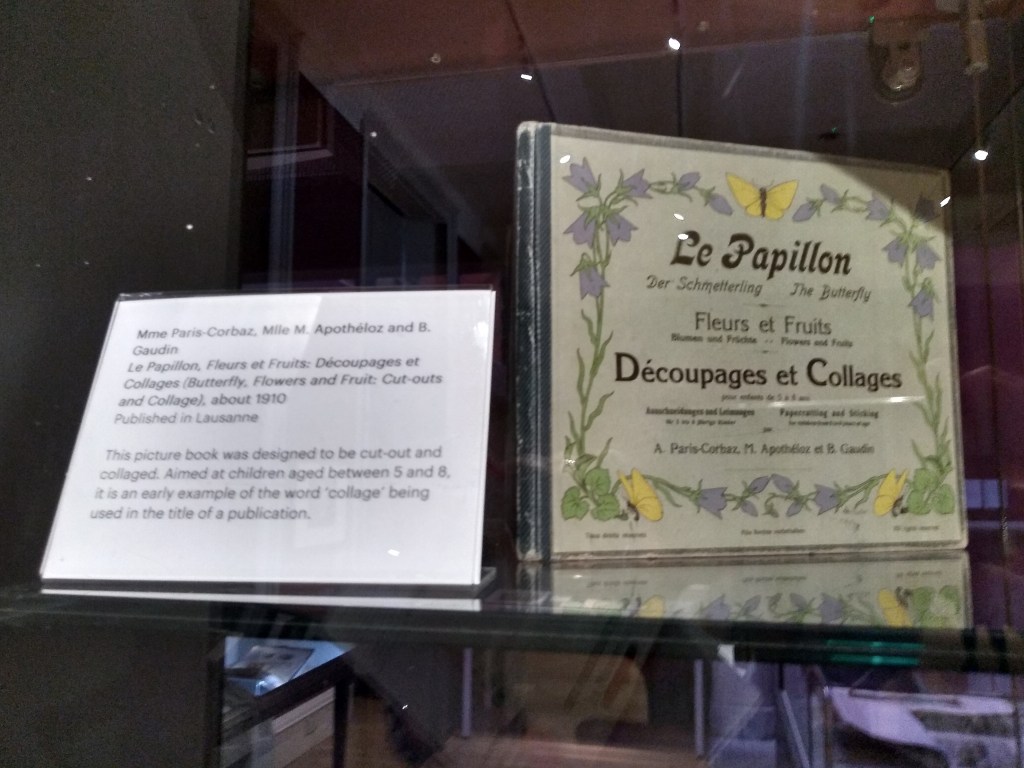 Mme Paris-Corbaz, Mlle M. Apothéloz and B.
Gaudin
Le Papillon, Fleurs et Fruits: Découpages et
Collages (Butterfly, Flowers and Fruit: Cut-outs
and Collage), about 1910
Published in Lausanne
This picture book was designed to be cut-out and
collaged. Aimed at children aged between 5 and 8,
it is an early example of the word ‘collage’ being
used in the title of a publication.
Le Papillon
Der Schmetterling The Butterfly
Fleurs et Fruits
Blumen und Früchte -- Flowers and Fruits
Découpages et Collages
pour enfants de 5 à 8 ans
Ausschneidungen und Leimungen Papercutting and Sticking
A. Paris-Corbaz, M. Apothéloz et B. Gaudin
Tous droits réservés All rights reserved